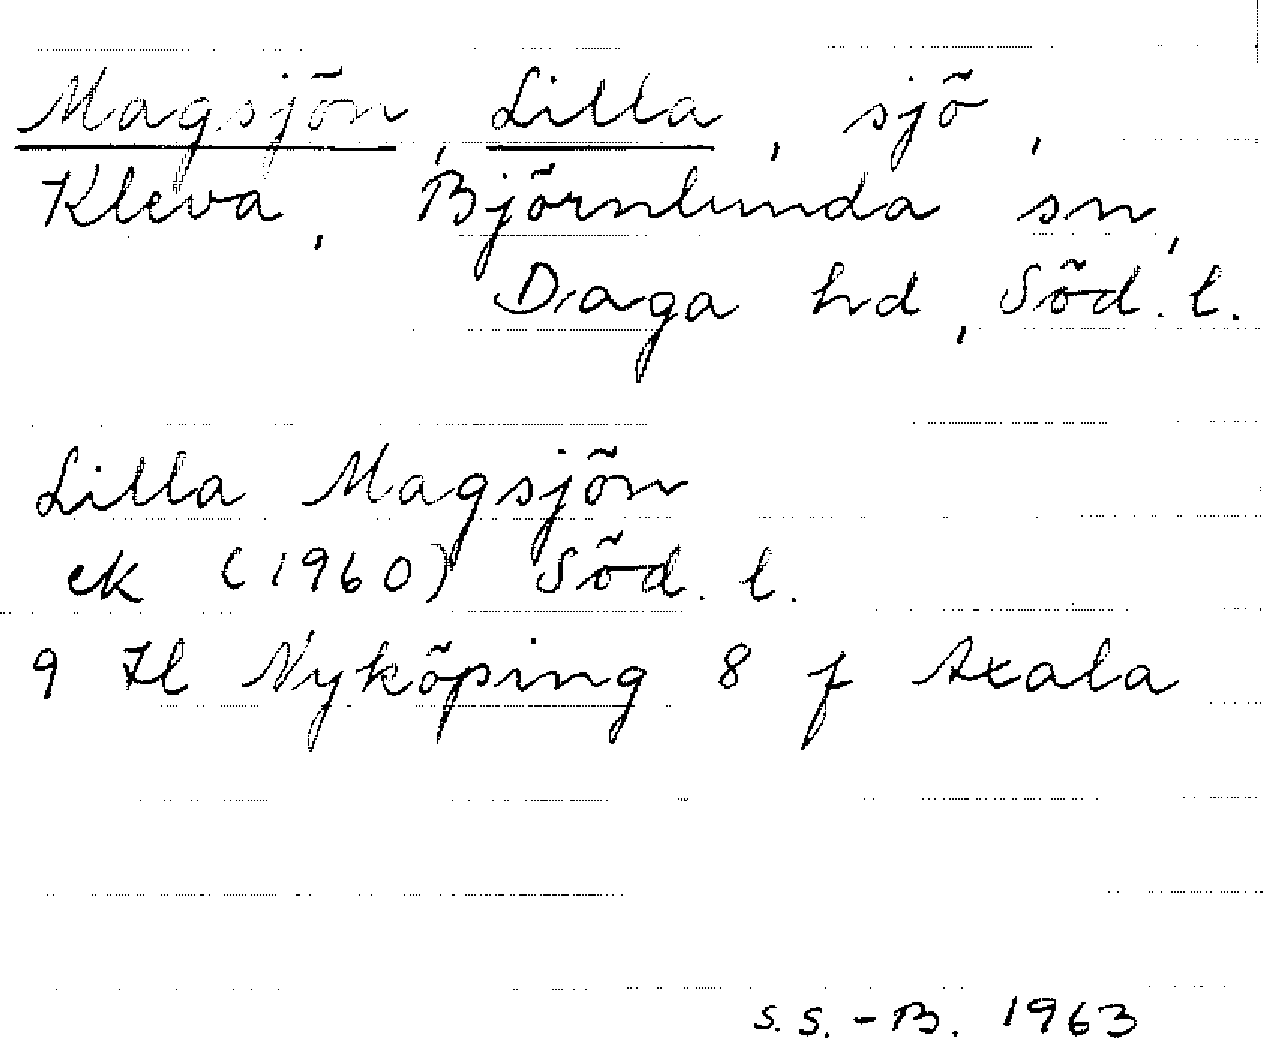 Magsjön, Lilla, sjö,
Kleva, Björnlunda sn,
Daga hd, Söd. l.
Lilla Magsjön
ek (1960) Söd. l.
9 H Nyköping 8 f Axala
S.S.-B. 1963